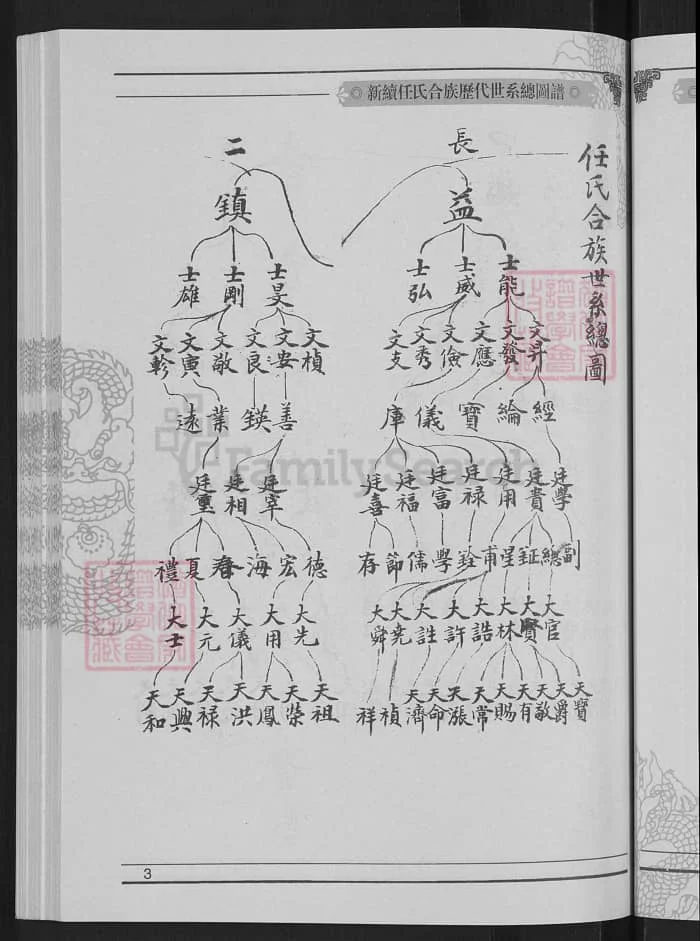 新續任氏合族歷代世系總圖譜
任氏合族世系總圖
長 二
益 鎮
士能 士威 士弘 士旻 士剛 士雄
文昇 文發 文應 文儉 文秀 文支 文楨 文安 文良 文敬 文寅 文軫
經 綸 寶 儀 庫 善 鍈 業 遠
廷學 廷貴 廷用 廷祿 廷富 廷福 廷喜 廷宰 廷相 廷璽
副 總 鉦 星 甫 銓 學 儒 節 存 德 宏 海 春 夏 禮
大官 大賢 大林 大誥 大許 大詿 大堯 大舜 大先 大用 大儀 大元 大士
天賢 天爵 天敬 天有 天賜 天常 天漲 天命 天濟 禎 祥 天祖 天榮 天鳳 天洪 天禄 天興 天和
FamilySearch
3